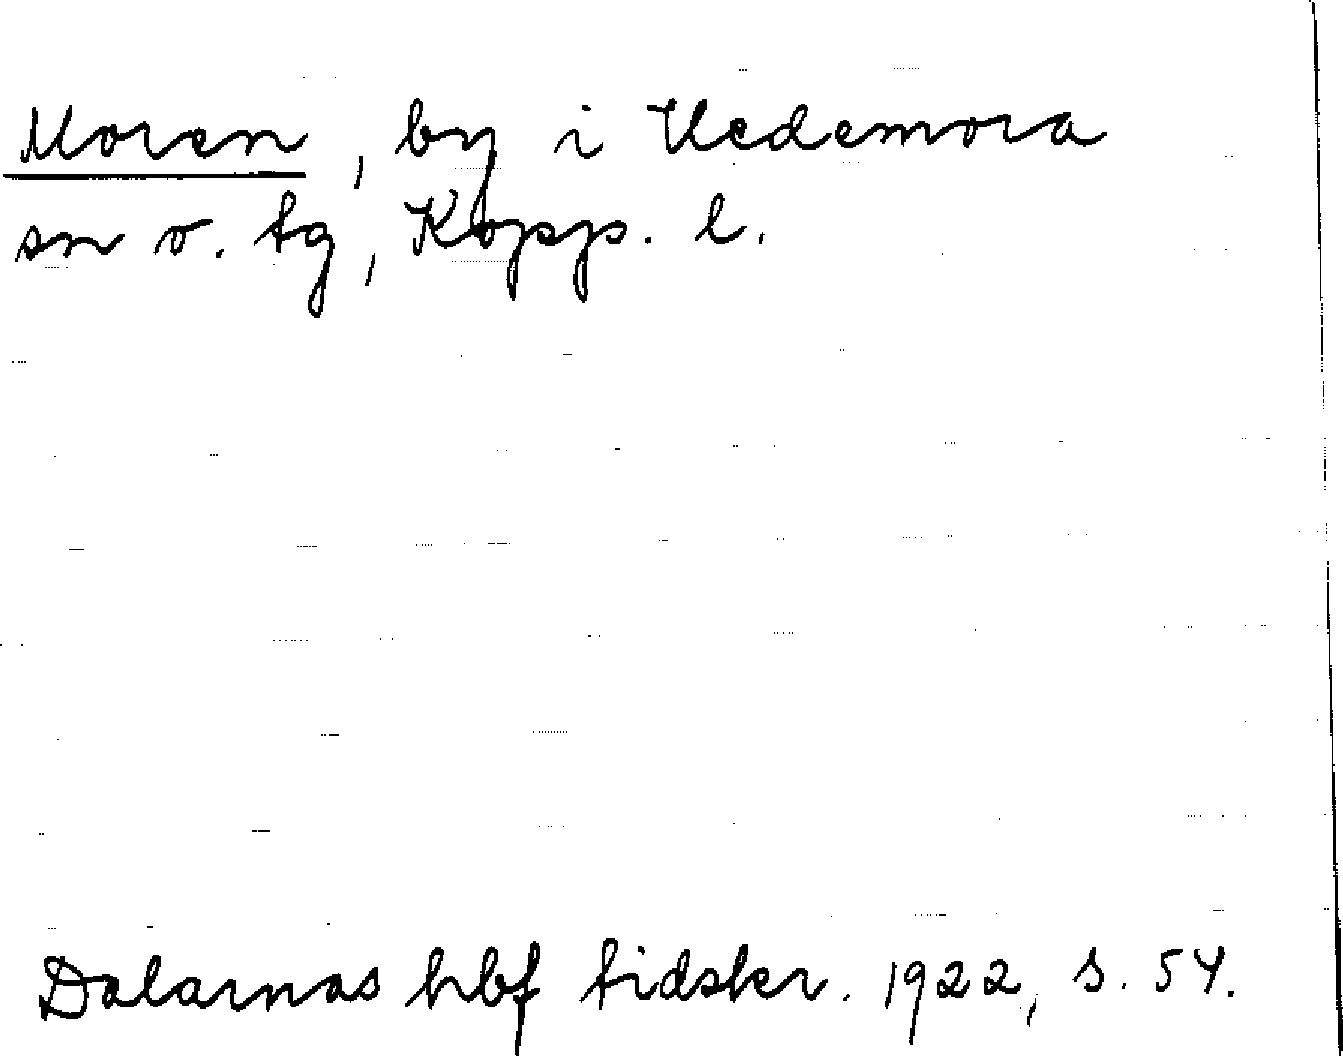 Moren, by i Hedemora
sn o. tg, Kopp. l.
Dalarnas hbf tidskr. 1922, s. 54.